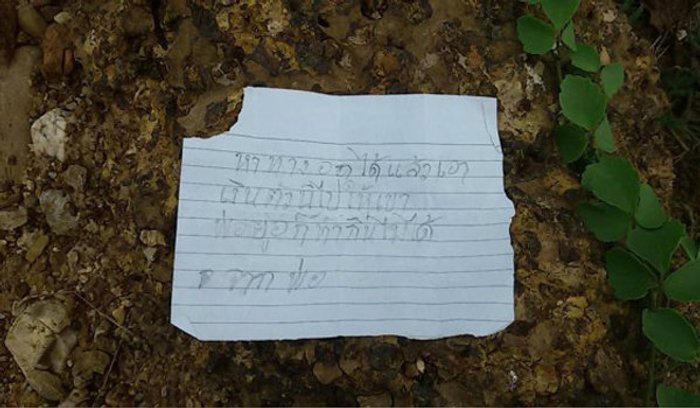 หาทางออกได้แล้วเอา
เงินตัวนี้ไปให้เขา
พ่อ ก็ทำกินไม่ได้
จาก พ่อ